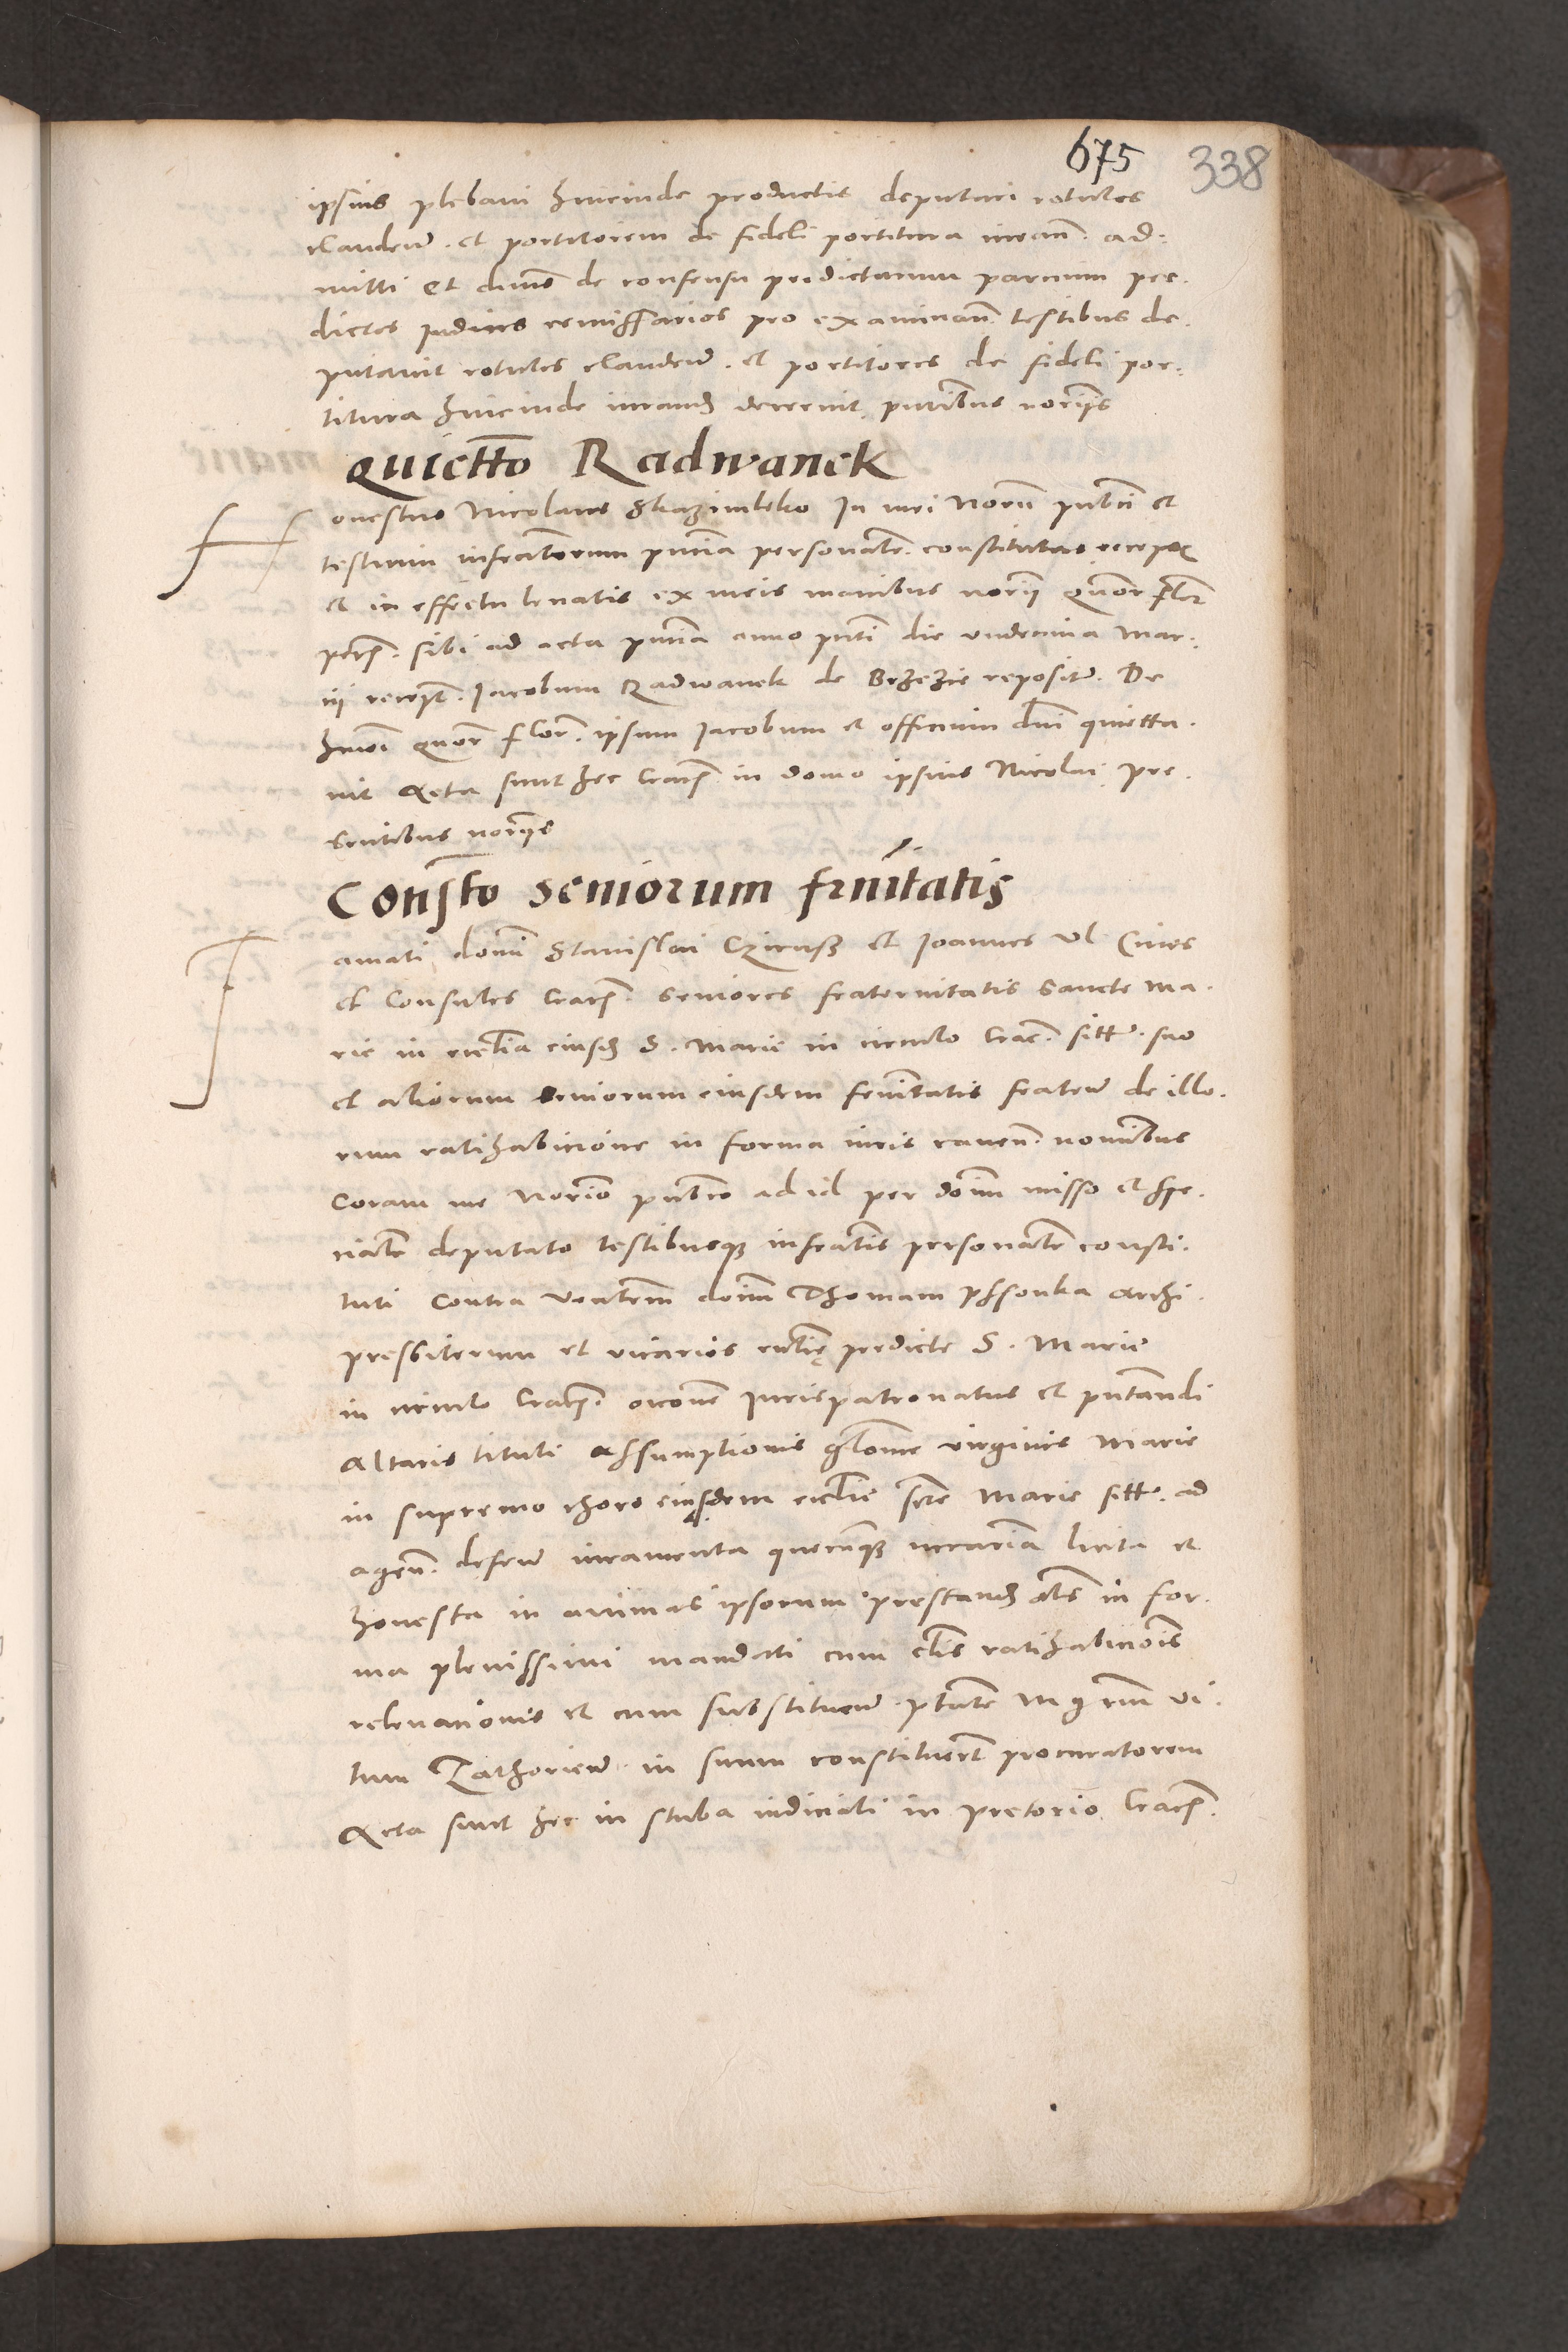 675 338
ipsius plebani hincinde productis deputari rotulos
claudeñ. et portitorem de fideli portitura iurañ. ad:
mitti Et dnus de consensu predictarum parcium pre.
dictos Iudices remissarios pro examinañ. testibus de.
putavit rotulos claudeñ. et portitores de fideli por:
titura hincinde iurand decrevit pntibus noriis
Quietto Radwanek
Honestus Nicolaus Skazimleko In mei Norii publici et
testium infrascriptorum pntia personalr. constitutus receptis
et in effectu levatis ex meis manibus norii quatuor flor
per sibi ad acta pntia anno pnti die undecima Mar.
cii recept. Iacobum Radwanek de Brzezie repositis. De
huiusmodi quatuor flor. ipsum Iacobum et officium dni quietta.
vit Acta sunt hec Crac. in domo ipsius Nicolai pre.
sentibus noriis
Constto Seniorum frnitatis
Famati domini Stanislai Czirusz et Ioannes Ul Cives
et Consules Crac. Seniores fraternitatis Sancte Ma.
rie in ecclia eiusd S. Marie in circulo Crac. sitte. suo
et aliorum seniorum eiusdem frnitatis fratrum de illo.
rum ratihabicione in forma iuris caven. nominibus
Coram me Norio publico ad id per dominum misso et spe.
cialr deputato testibusque infrascriptis personalr consti.
tuti Contra venerabilem dominum Thomam Pssonka Archi.
presbiterum et vicarios ecclie predicte S. Marie
in circulo Crac. occone Iurispatronatus et pntandi
Altaris tituli Assumptionis gloriose virginis Marie
in supremo choro eiusdem ecclie sancte Marie sitte. ad
agen. defen iuramenta quecunque necessaria licita et
honesta in animas ipsorum prestand als in for.
ma plenissimi mandati cum clis ratihabicionis
relevacionis et cum substituen. ptate Mgrum Vi.
tum Zathorien. in suum constituerunt procuratorem
Acta sunt hec in stuba iudiciali in pretorio Crac.